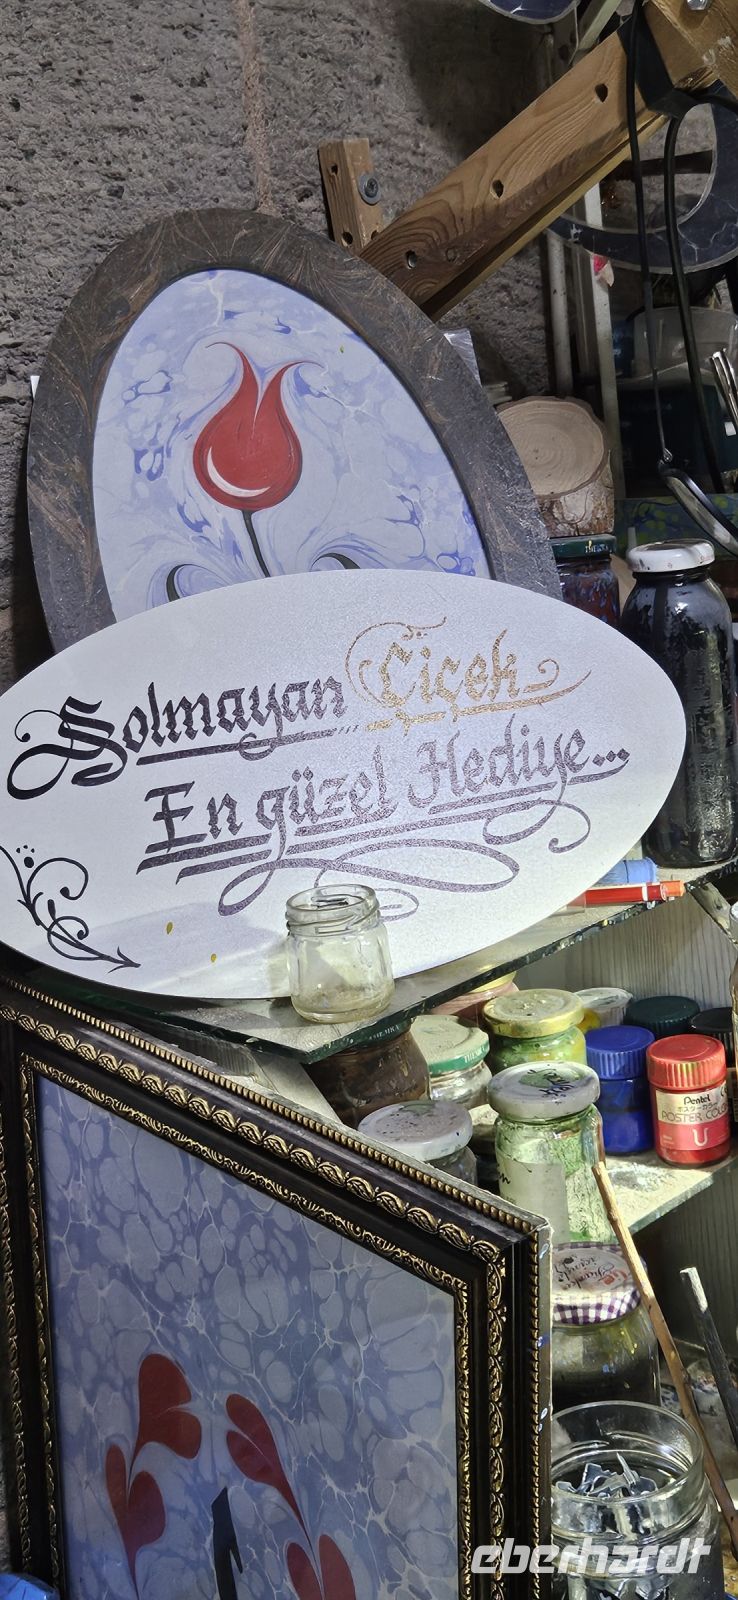 Solmayan Çiçek
En güzel Hediye...
Pentel
ポスターカラー
POSTER COLOR
U
eberhardt